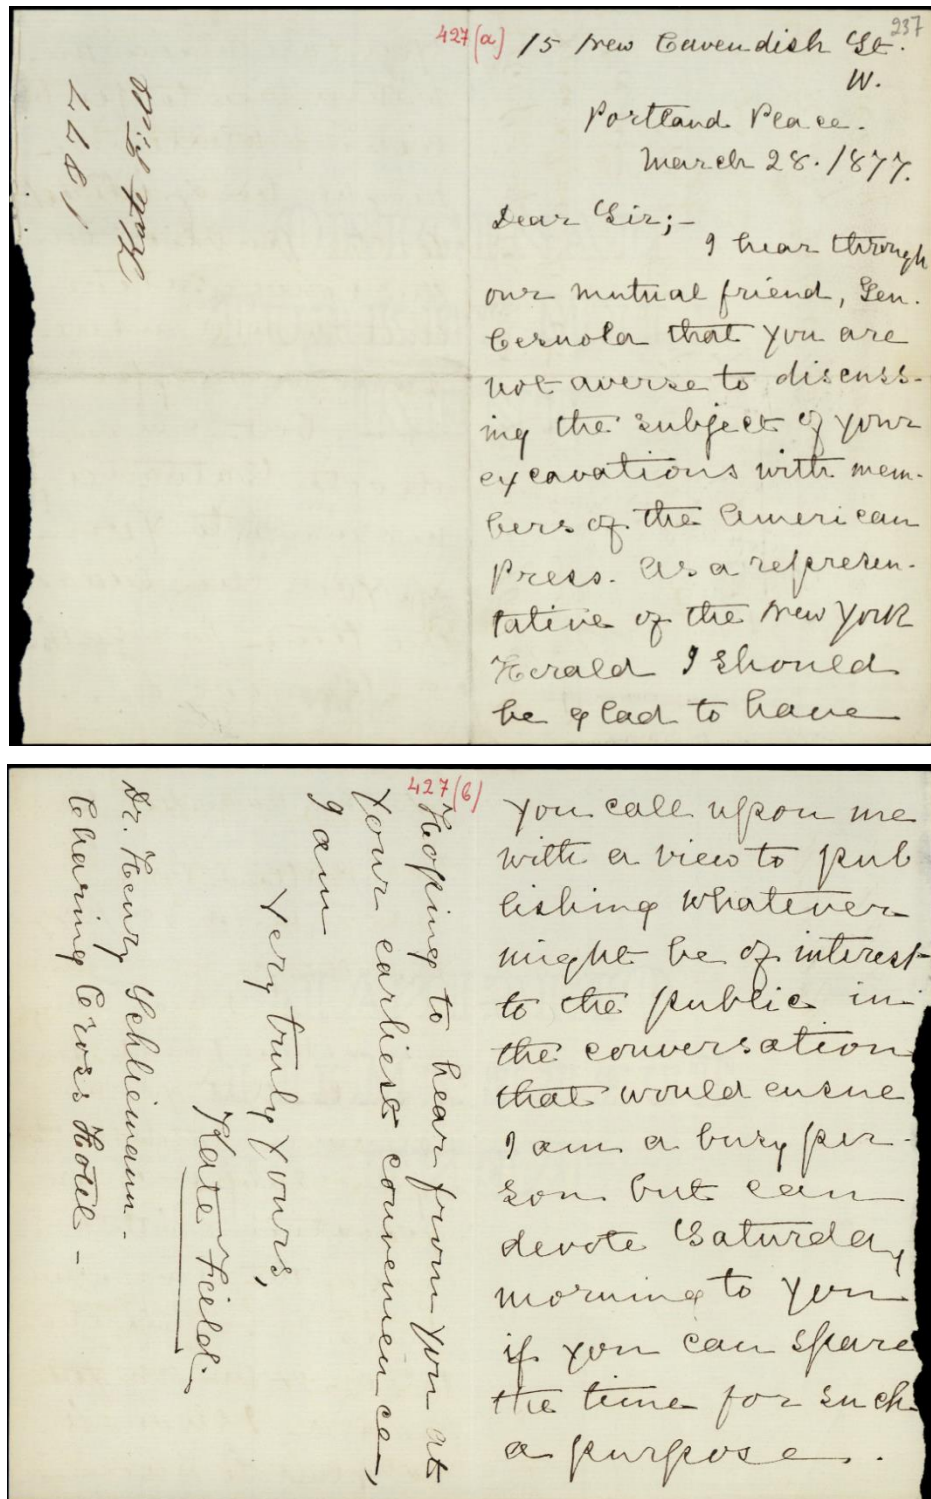 427(a)
937
15 New Cavendish St.
W.
Portland Place.
March 28. 1877.
Dear Sir;-
I hear through
our mutual friend, Gen.
Cesnola that you are
not averse to discuss-
ing the subject of your
excavations with mem-
bers of the American
Press. As a represen-
tative of the New York
Herald I should
be glad to have
427(b)
you call upon me
with a view to pub
lishing whatever
might be of interest
to the public in
the conversation
that would ensue
I am a busy per-
son but can
devote Saturday
morning to you
if you can spare
the time for such
a purpose.
Hoping to hear from you at
your earliest convenience,
I am
Very truly yours,
Kate Field.
Dr. Henry Schliemann.
Charing Cross Hotel -